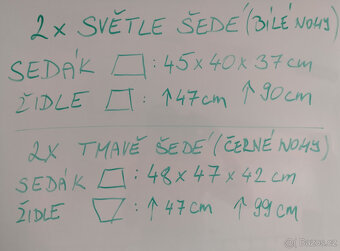 2x SVĚTLE ŠEDÉ (BÍLÉ NOHY)
SEDÁK : 45 x 40 x 37 cm
ŽIDLE : ↑47cm ↑90cm
2X TMAVĚ ŠEDÉ (ČERNÉ NOHY)
SEDÁK : 48 x 47 x 42 cm
ŽIDLE : ↑47 cm ↑99 cm
Bazos.cz